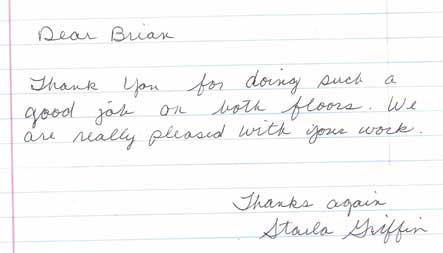 Dear Brian
Thank you for doing such a
good job on both floors. We
are really pleased with your work.
Thanks again
Staila Griffin